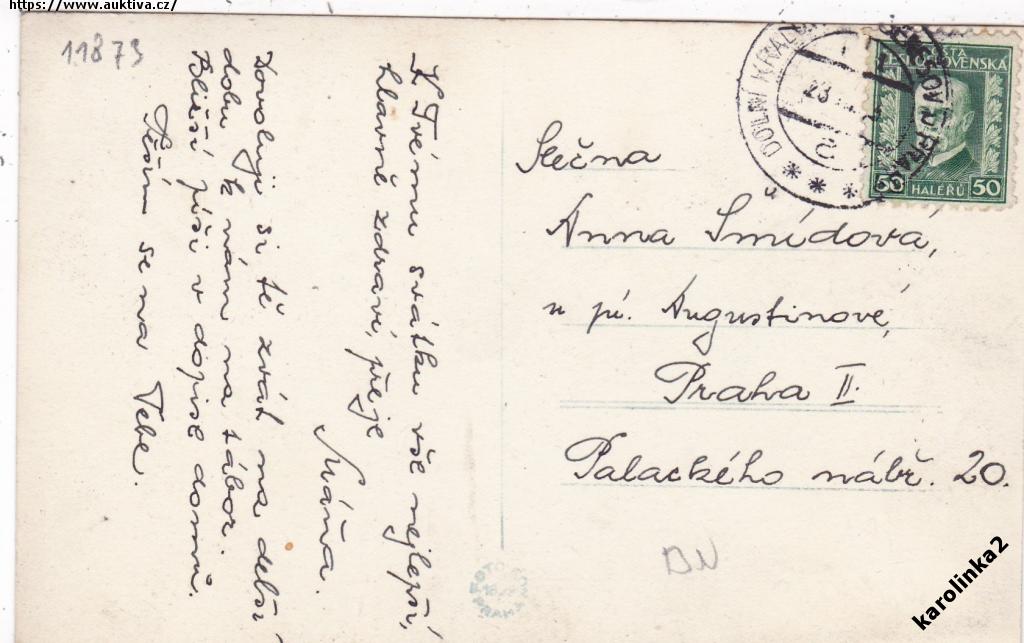 https://www.auktiva.cz/
11873
K Tvému svátku vše nejlepší,
hlavně zdraví, přeje
Máňa.
Dovoluji si tě zvát na delší
dobu k nám na tábor.
Bližší píši v dopise domů.
Těším se na Tebe.
DOLNÍ KRALO
23
ČESKOSLOVENSKÁ
50 HALÉŘŮ 50
Slečna
Anna Šmídova,
u pí. Augustinové,
Praha II.
Palackého nábř. 20.
BN
FOTO
karolinka2